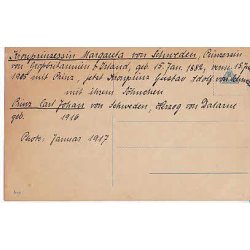 Kronprinzessin Margareta von Schweden, Prinzessin
von Großbritannien & Irland, geb. 15. Jan. 1882, verm. 15. Juni
1905 mit Prinz, jetzt Kronprinz Gustav Adolf von Schweden
mit ihrem Söhnchen
Prinz Carl Johan von Schweden, Herzog von Dalarne
geb. 1916
Photo: Januar 1917